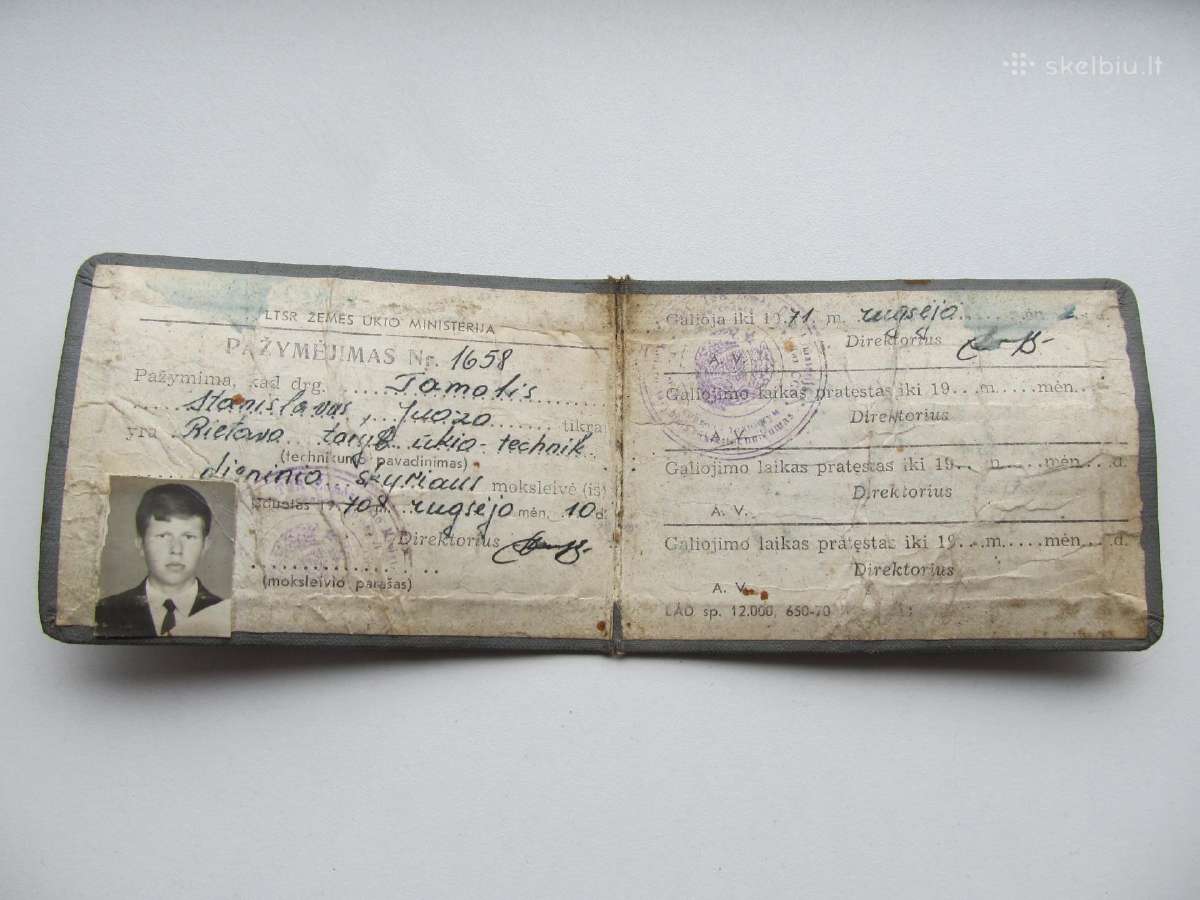 skelbiu.lt
LTSR ŽEMĖS ŪKIO MINISTERIJA
PAŽYMĖJIMAS Nr. 1658
Pažymima, kad drg. ....Tamašis
Stanislovas, Juozo tikrai
yra Rietavo taryb. ūkio-technik.
(technikumo pavadinimas)
dieninio skyriaus moksleivė (is)
Duotas 1970 8 rugsėjo mėn. 10 d.
Direktorius
(moksleivio parašas)
Galioja iki 1971 m. rugsėjo mėn.
A. V. Direktorius
Galiojimo laikas pratęstas iki 19...m.....mėn....d.
A. V. Direktorius
Galiojimo laikas pratęstas iki 19...m.....mėn....d.
Direktorius
A. V.
Galiojimo laikas pratęstas iki 19...m.....mėn....d.
Direktorius
A. V.
LAO sp. 12.000, 650-70